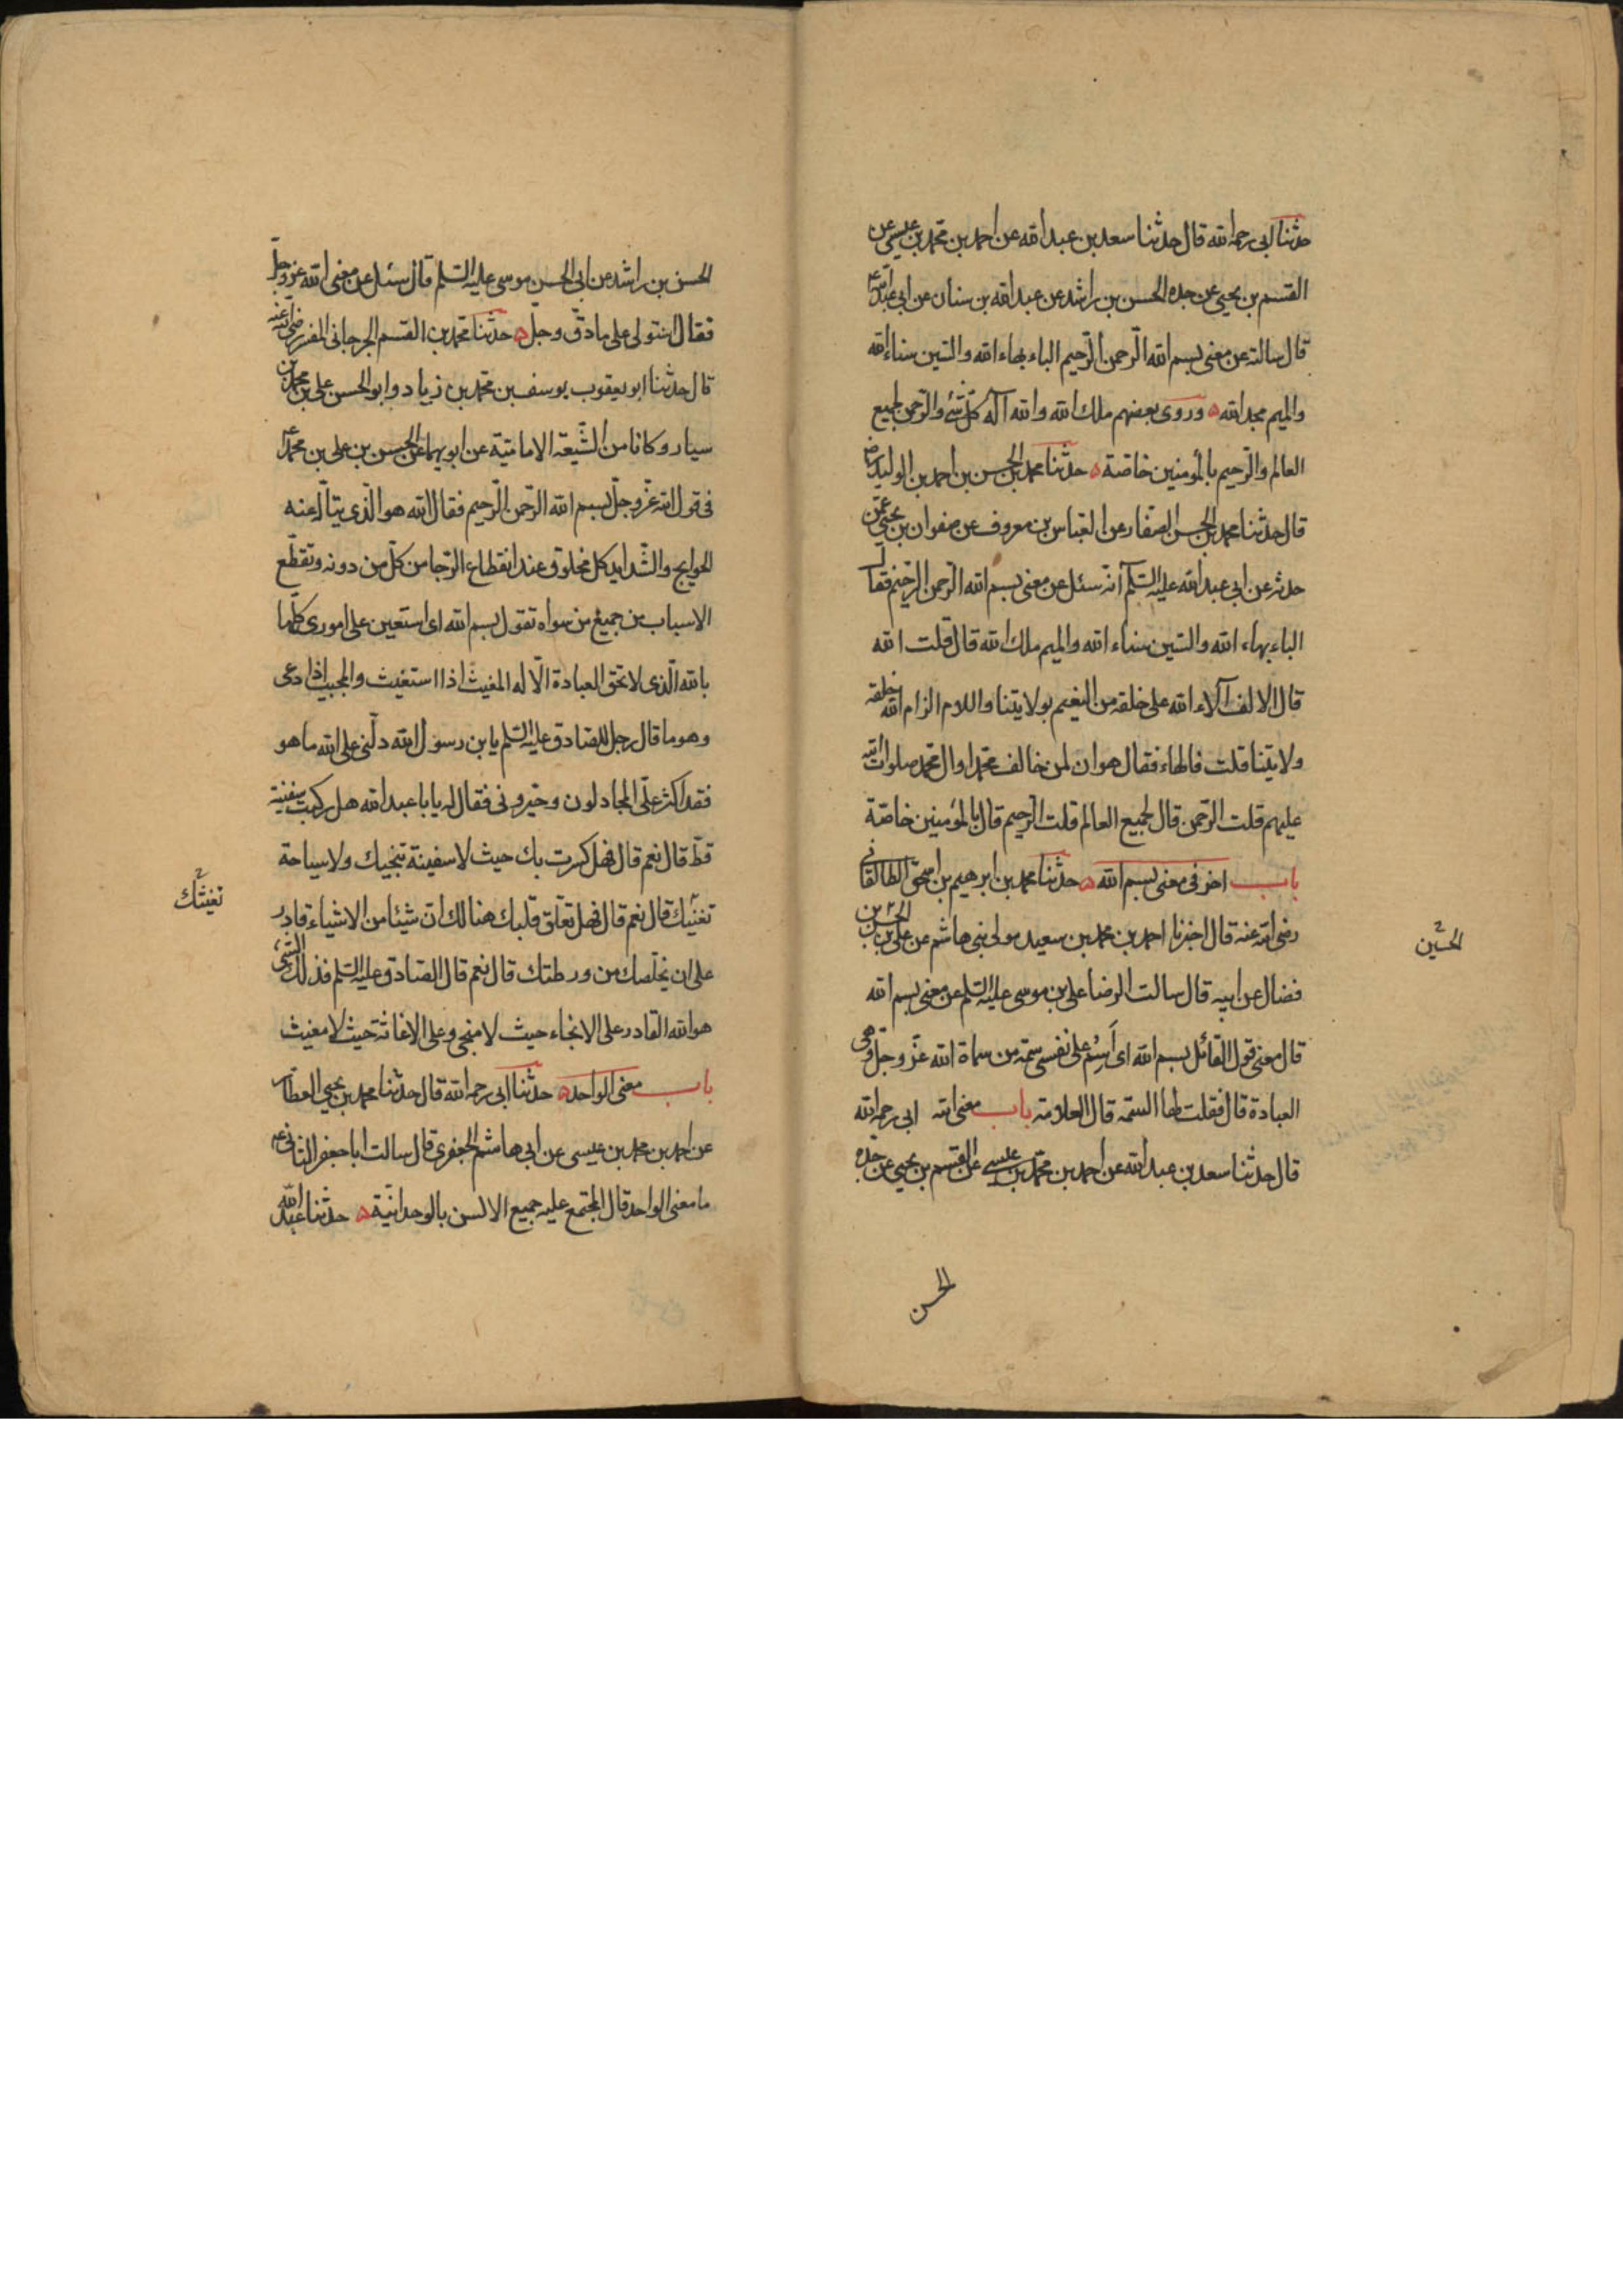 حدثنا ابى رحمه الله قال حدثنا سعد بن عبد الله عن احمد بن محمد بن عيسى عن
القسم بن يحيى عن جده الحسن بن راشد عن عبد الله بن سنان عن ابى عبد الله ع
قال سالته عن معنى بسم الله الرّحمن الرّحيم الباء بهاء الله والسّين سناء الله
والميم مجد الله ه وروى بعضهم ملك الله والله آله كلّ شئ والرّحمن لجميع
العالم والرّحيم بالمؤمنين خاصّة ه حدّثنا محمد بن الحسن بن احمد بن الوليد رض
قال حدّثنا محمد بن الحسن الصفّار عن العبّاس بن معروف عن صفوان بن يحيى عمّن
حدثه عن ابى عبد الله عليه السّلم انّه سئل عن معنى بسم الله الرحمن الرّحيم فقال
الباء بهاء الله والسّين سناء الله والميم ملك الله قال قلت الله
قال الالف آلاء الله على خلقه من النعيم بولايتنا واللام الزام الله خلقه
ولايتنا قلت فالهاء فقال هوان لمن خالف محمدا وال محمد صلوات الله
عليهم قلت الرّحمن قال لجميع العالم قلت الرّحيم قال بالمؤمنين خاصّة
باب اخر فى معنى بسم الله ه حدّثنا محمد بن ابرهيم بن اسحق الطالقانى
رضى الله عنه قال اخبرنا احمد بن محمد بن سعيد مولى بنى هاشم عن على بن الحسن بن
الحسين
فضال عن ابيه قال سالت الرضا على بن موسى عليه السّلم عن معنى بسم الله
قال معنى قول القائل بسم الله اى اَسِمُ على نفسى سمة من سماة الله عزّ وجلّ وهى
العبادة قال فقلت لها السّمه قال العلامة باب معنى الله ابى رحمه الله
قال حدّثنا سعد بن عبد الله عن احمد بن محمّد بن عيسى عن القسم بن يحيى عن جدّه
الحسن
الحسن بن راشد عن ابى الحسن موسى عليه السّلم قال سئل عن معنى الله عزّ وجلّ
فقال استولى على ما دقّ وجلّ ه حدّثنا محمد بن القسم الجرجانى المفسر رضى الله عنه
قال حدّثنا ابو يعقوب يوسف بن محمّد بن زياد وابو الحسن على بن محمد بن
سيار وكانا من الشّيعة الاماميّة عن ابويهما عن الحسن بن على بن محمد ع
فى قول الله عزّ وجلّ بسم الله الرّحمن الرّحيم فقال الله هو الّذى يتألّه عنه
الحوايج والشّدايد كل مخلوق عند انقطاع الرّجا من كلّ من دونه وتقطّع
الاسباب من جميع من سواه تقول بسم الله اى استعين على امورى كلّها
بالله الّذى لا تحق العبادة الّا له المغيث اذا استغيث والمجيب اذا دعى
وهو ما قال رجل للصّادق عليه السّلم يا بن رسول الله دلّنى على الله ما هو
فقد اكثر علّى المجادلون وحيّرونى فقال له يا با عبد الله هل ركبت سفينة
قطّ قال نعم قال فهل كسرت بك حيث لا سفينة تنجيك ولا سباحة
تغنيك قال نعم قال فهل تعلّق قلبك هنالك انّ شيئا من الاشياء قادر
تغيثك
على ان يخلّصك من ورطتك قال نعم قال الصّادق عليه السّلم فذلك الشّئ
هو الله القادر على الانجاء حيث لا منجى وعلى الاغاثة حيث لا مغيث
باب معنى الواحد ه حدّثنا ابى رحمه الله قال حدّثنا محمد بن يحيى العطّار
عن احمد بن محمد بن عيسى عن ابى هاشم الجعفرى قال سالت ابا جعفر الثانى ع
ما معنى الواحد قال المجتمع عليه جميع الالسن بالوحدانيّة ه حدّثنا عبد الله